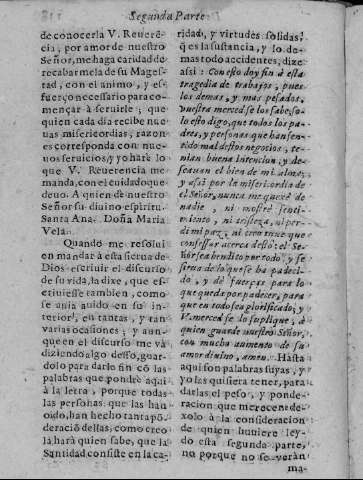 Segunda Parte
de conocerla V. Reuerē
cia, por amor de nuestro
Señor, me haga caridad de
recabarmela de su Mages-
tad, con el animo, y es-
fuerço necessario para co-
mençar à seruirle; que
quien cada dia recibe nue-
uas misericordias, razon
es corresponda con nue-
uos seruicios, y yo harè lo
que V. Reuerencia me
manda, con el cuidado que
deuo. A quien de nuestro
Señor su diuino espiritu.
Santa Ana. Doña Maria
Vela.
Quando me resolui
en mandar à esta sierua de
Dios escriuir el discurso
de su vida, la dixe, que es-
criuiesse tambien, como
se auia auido en su in-
terior, en tantas, y tan
varias ocasiones; y aun-
que en el discurso me va
diziendo algo desso, guar-
dolo para darlo fin cō las
palabras que pondrè aqui
à la letra, porque todas
las personas que las han
oido, han hecho tanta pō-
deraciō dellas, como creo
la harà quien sabe, que la
Santidad consiste en la ca-
ridad, y virtudes solidas,
q̃ es la sustancia, y lo de-
mas todo accidentes, dize
assi: Con esto doy fin à esta
tragedia de trabajos, pues
los demas, y mas pesados,
vuestra merced se los sabe, so-
lo esto digo, que todos los pa-
dres, y personas que han sen-
tido mal destos negocios, te-
nian buena intencion, y de-
seauan el bien de mi alma,
y assi por la misericordia de
el Señor, nunca me quexè de
nadie, ni mostrè senti-
miento, ni tristeza, ni per-
di mi paz, ni creo tuue que
confessar acerca desto: el Se-
ñor sea bendito por todo, y se
sirua de lo que se ha padeci-
do, y dè fuerças para lo
que queda por padecer, para
que en todo sea glorificado; y
V. merced se lo suplique, à
quien guarde nuestro Señor,
con mucho aumento de su
amor diuino, amen. Hasta
aqui son palabras suyas, y
yo las quisiera tener, para
darlas el peso, y ponde-
racion que merecen: de-
xolo à la consideracion
de quien huuiere ley-
do esta segunda parte,
no porque no se veràn
ma-